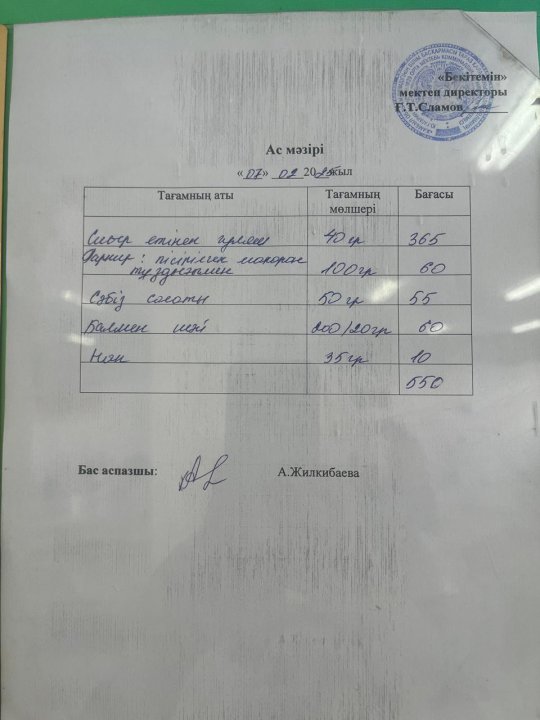 «Бекітемін»
мектеп директоры
Г.Т.Сламов
Ас мәзірі
«07» 02 2025 жыл
Тағамның аты Тағамның мөлшері Бағасы
Сиыр етінен гуляш 40гр 365
Гарнир: пісірілген макарон
тұздықпен 100гр 60
Сәбіз салаты 50гр 55
Балмен шәй 200/20гр 60
Нан 35гр 10
550
Бас аспазшы: А.Жилкибаева